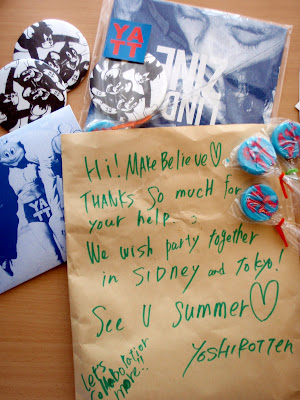 YA
TT
ZINE
YATT
Hi! MAKE Believe♡.
THANKS So much for
your help. :)
We wish party together
in SIDNEY and TOKYO!
See U Summer♡
YOSHIROTTEN
Let's
Collaboration
more..!!